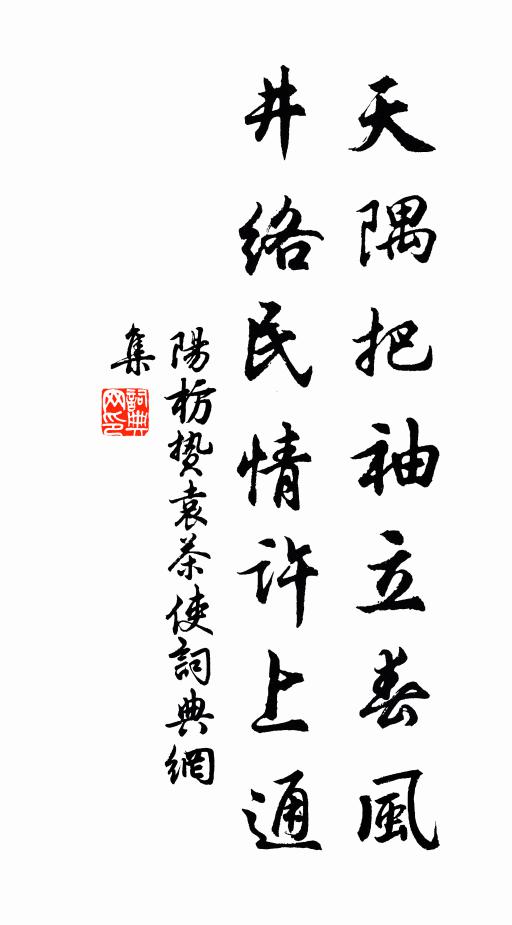 天隅把袖立春風
井絡民情許上通
陽枋贄袁茶使詞典網
集
詞典
网印